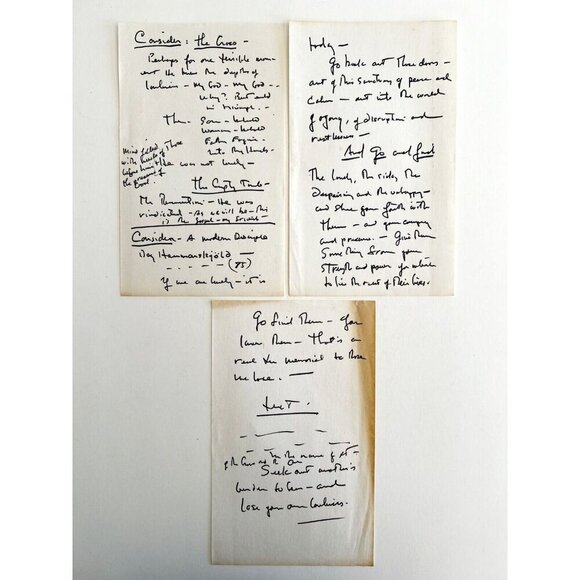 Consider: the Cross -
Perhaps for one terrible moment
He knew the depths of
loneliness - My God - My God - -
Why? But ended
in triumph. -
The Son - behold
Woman - behold
Father Forgive -
Into Thy Hands.
Mind filled
with needs of those
before him - He was not lonely -
the presence of
God.
The Empty Tomb -
The Resurrection - He was
vindicated - As we will be - this
is the Gospel - my friends -
Consider - A modern Disciple
Dag Hammarskjöld -
(85)
If we are lonely - it is
today -
Go back out these doors -
out of this sanctuary of peace and
calm - out into the world
of agony, of disruption and
restlessness -
And Go and find
The lonely, the sick, the
despairing and the unhappy -
and share your faith with
them - and your company
and presence - Give them
something from your
strength and power for which
to live the rest of their lives.
Go find them - you
love them - That is a
real memorial to those
we love. -
text.
In the name of
Seek out another's
burden to bear - and
lose your own loneliness.